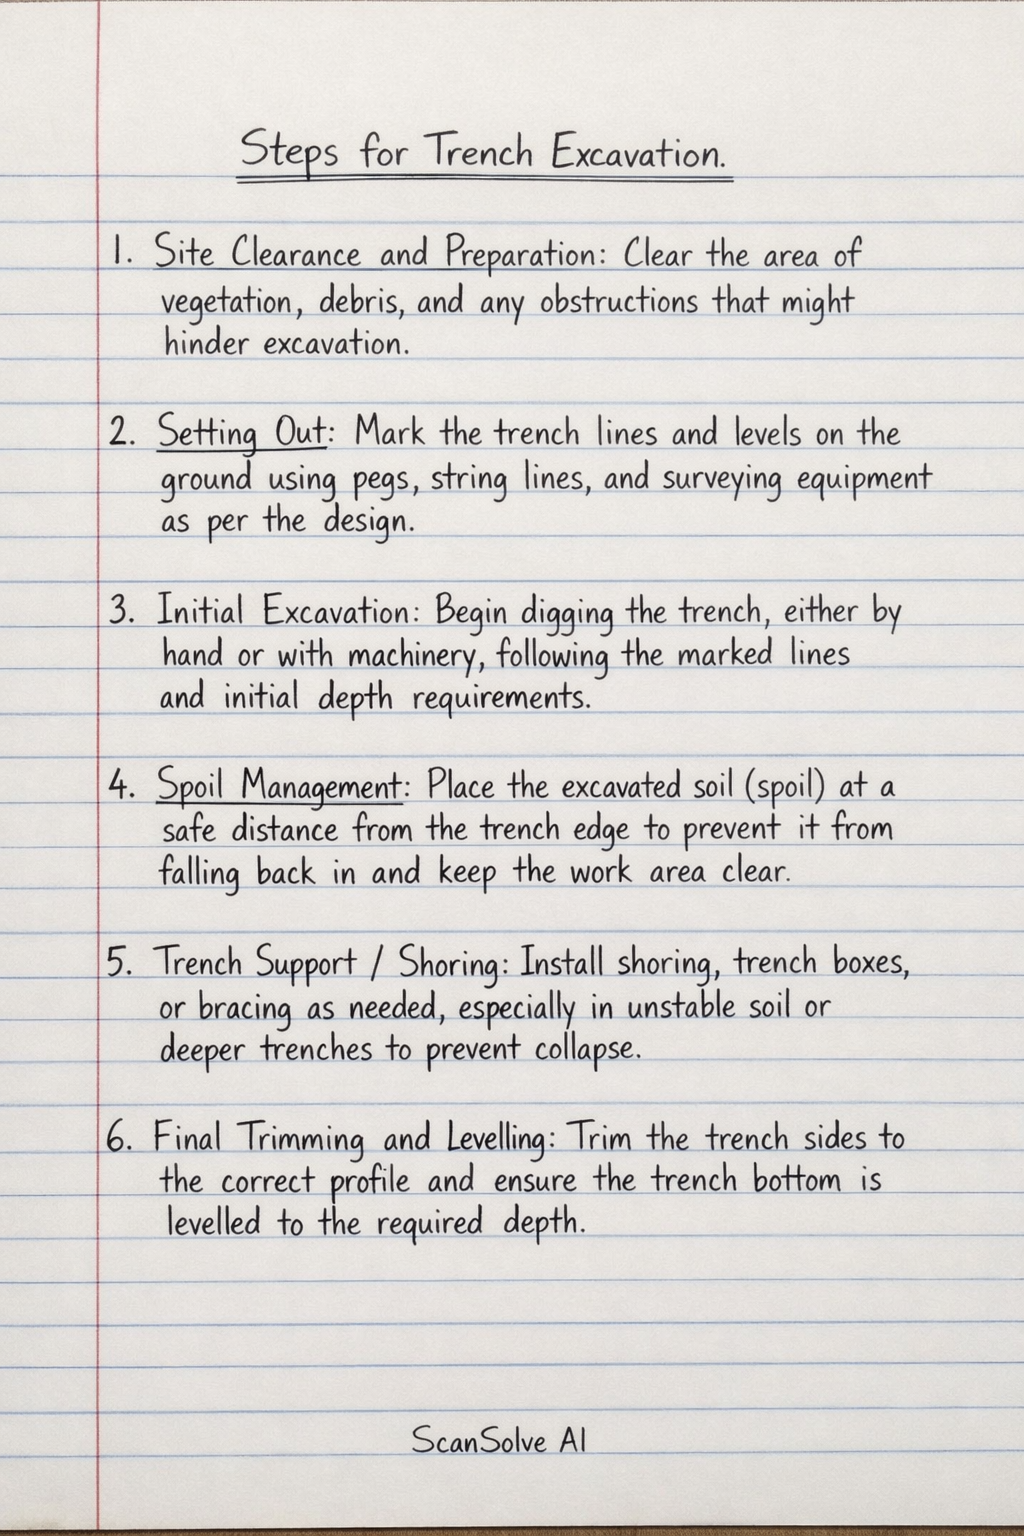 Steps for Trench Excavation.
1. Site Clearance and Preparation: Clear the area of
vegetation, debris, and any obstructions that might
hinder excavation.
2. Setting Out: Mark the trench lines and levels on the
ground using pegs, string lines, and surveying equipment
as per the design.
3. Initial Excavation: Begin digging the trench, either by
hand or with machinery, following the marked lines
and initial depth requirements.
4. Spoil Management: Place the excavated soil (spoil) at a
safe distance from the trench edge to prevent it from
falling back in and keep the work area clear.
5. Trench Support / Shoring: Install shoring, trench boxes,
or bracing as needed, especially in unstable soil or
deeper trenches to prevent collapse.
6. Final Trimming and Levelling: Trim the trench sides to
the correct profile and ensure the trench bottom is
levelled to the required depth.
ScanSolve AI